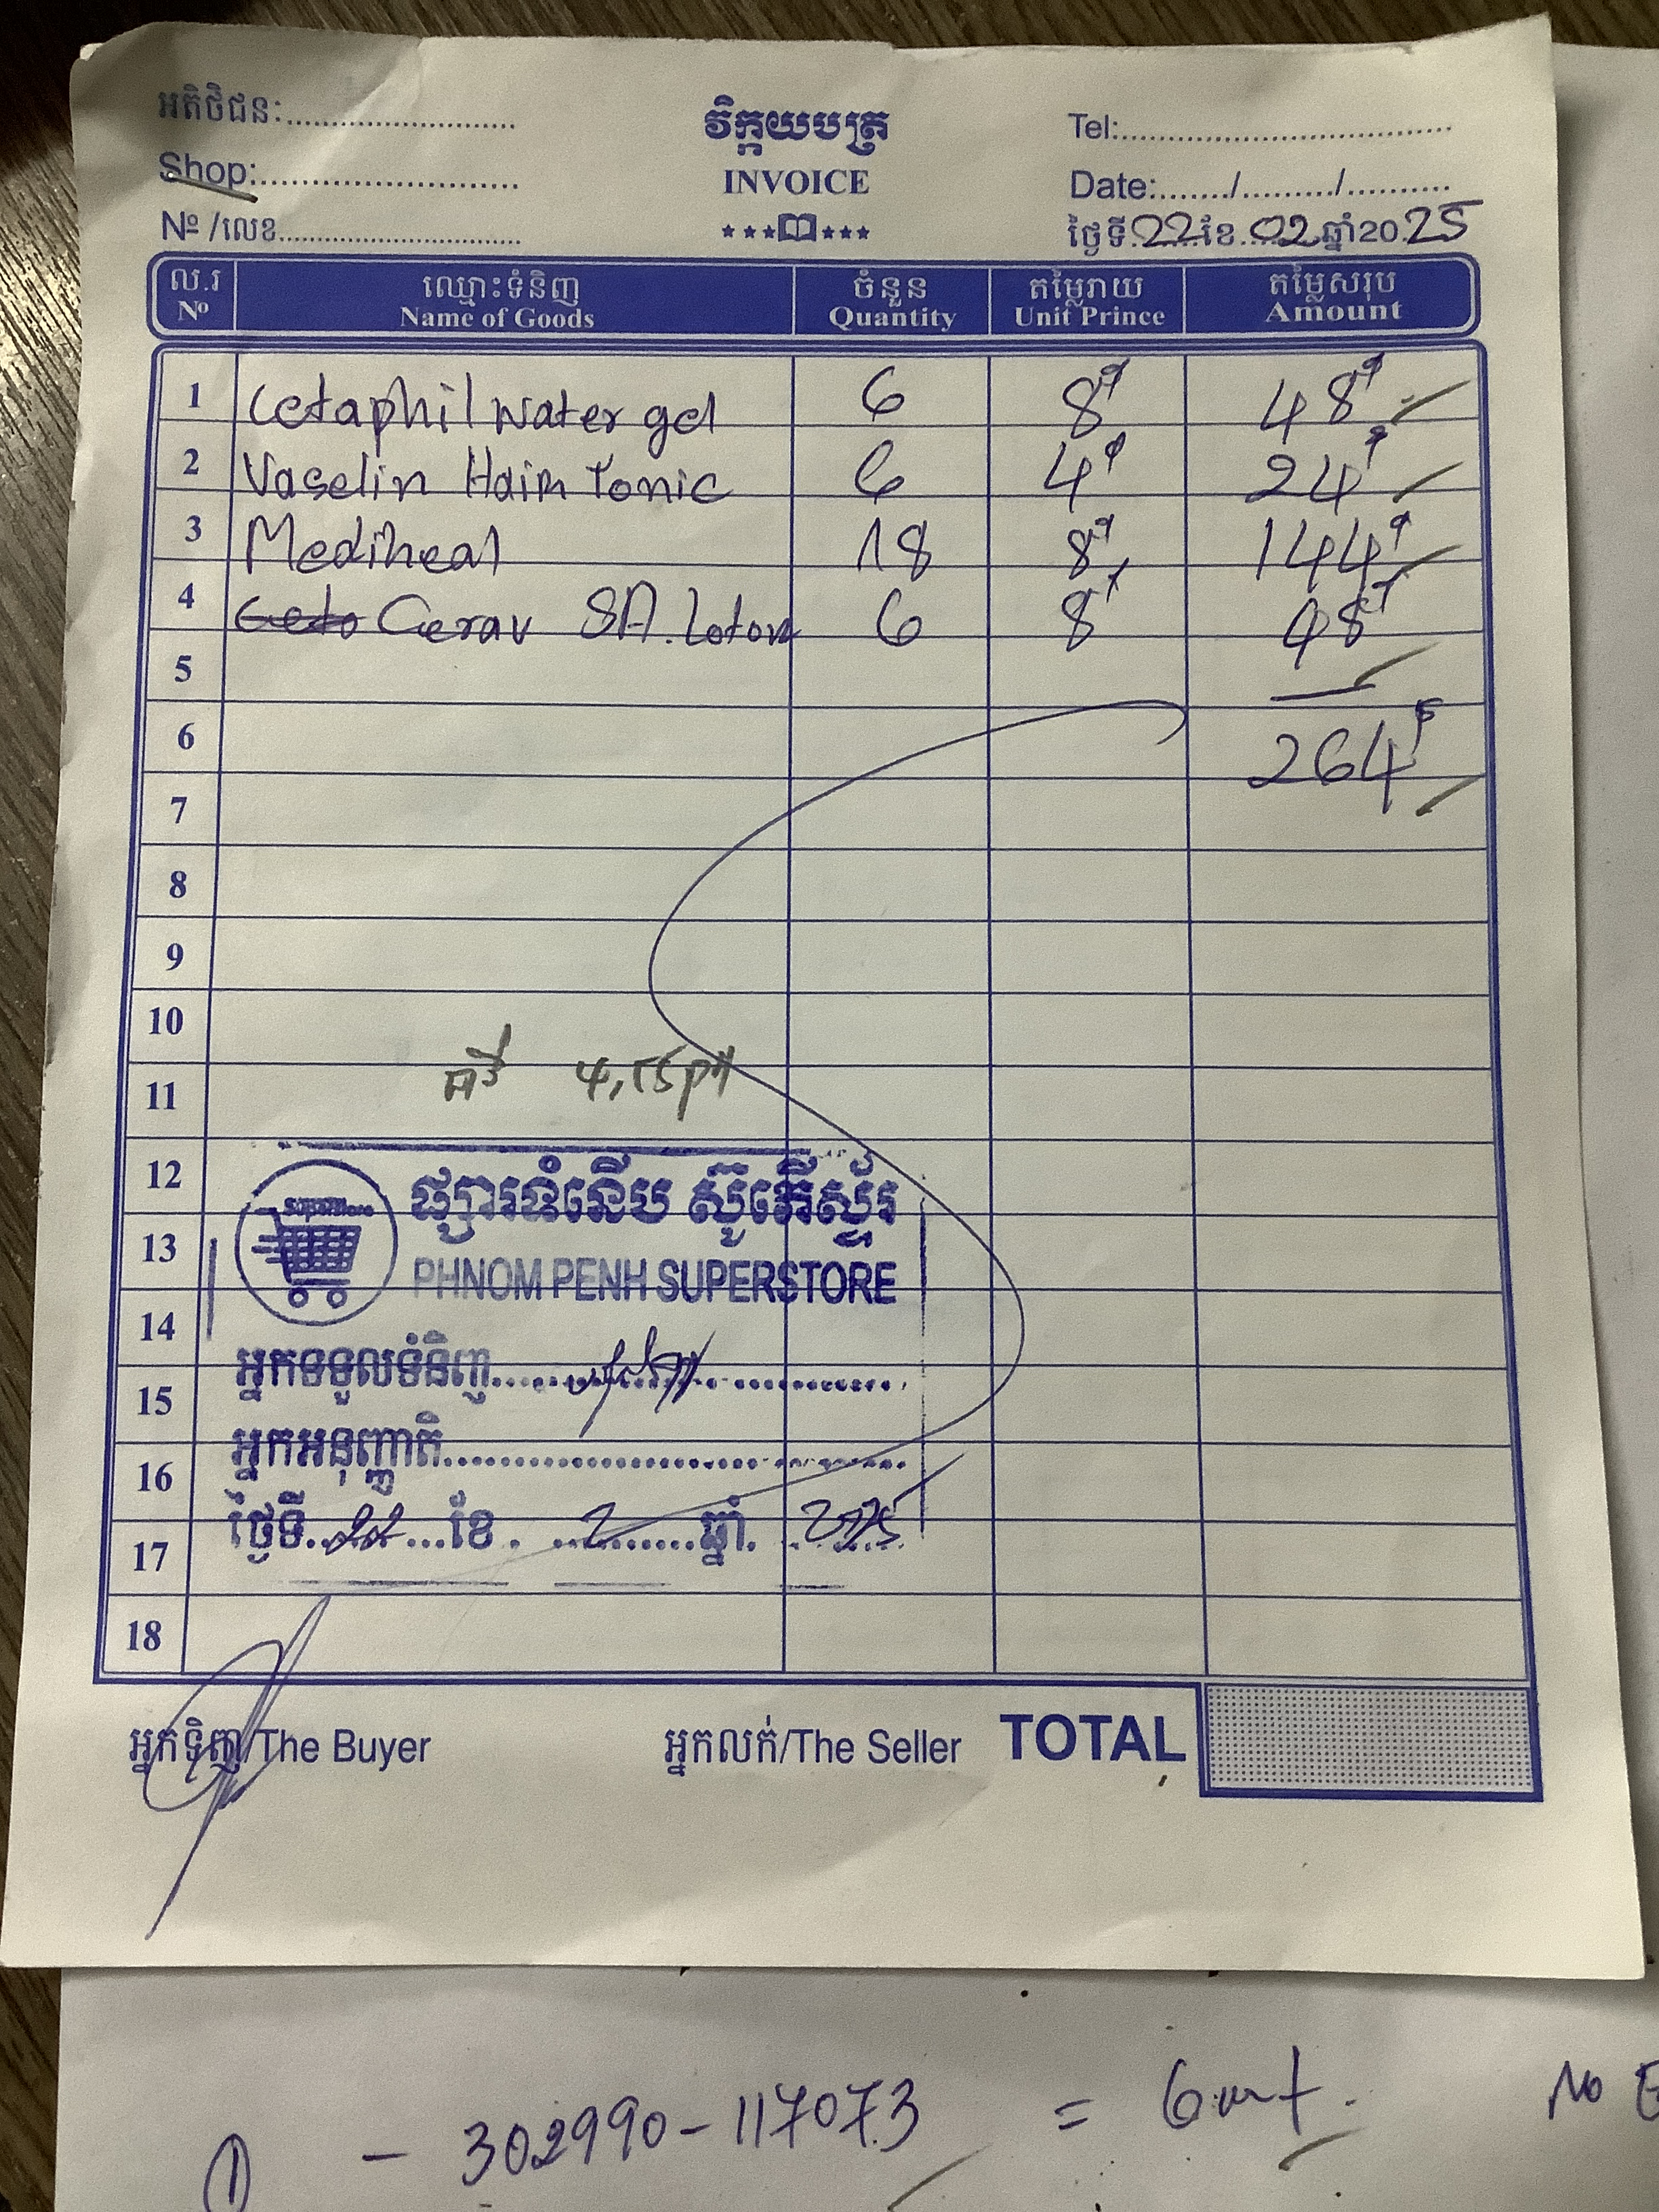 អតិថិជន:.......................... វិក្កយបត្រ Tel:..................................
Shop:.......................... INVOICE Date:......./........./...........
№ /លេខ.......................... ថ្ងៃទី 22 ខែ 02 ឆ្នាំ20 25
ល.រ ឈ្មោះទំនិញ ចំនួន តម្លៃរាយ តម្លៃសរុប
№ Name of Goods Quantity Unit Prince Amount
1 Cetaphil Water gel 6 8$ 48$
2 Vaselin Hair Tonic 6 4$ 24$
3 Mediheal 18 8$ 144$
4 Cerav SA. Loton 6 8$ 48$
5
6 264$
7
8
9
10
11
12 ផ្សារទំនើប ស៊ូភើស្ទ័រ
13 PHNOM PENH SUPERSTORE
14
អ្នកទទួលទំនិញ
15
អ្នកអនុញ្ញាតិ
16
ថ្ងៃទី 22 ខែ 2 ឆ្នាំ 2025
17
18
អ្នកទិញ/The Buyer អ្នកលក់/The Seller TOTAL
① - 302990-117073 = 6 No